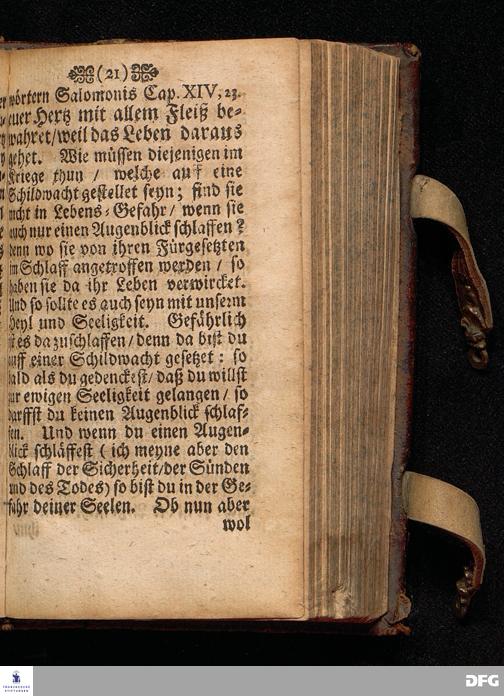 (21)
wörtern Salomonis Cap. XIV, 23.
euer Hertz mit allem Fleiß be-
wahret/weil das Leben daraus
gehet. Wie müssen diejenigen im
Kriege thun / welche auf eine
Schildwacht gestellet seyn; sind sie
nicht in Lebens-Gefahr/ wenn sie
auch nur einen Augenblick schlaffen?
denn wo sie von ihren Fürgesetzten
im Schlaff angetroffen werden / so
haben sie da ihr Leben verwircket.
Und so sollte es auch seyn mit unserm
Heyl und Seeligkeit. Gefährlich
ist es da zu schlaffen/denn da bist du
auff einer Schildwacht gesetzet: so
bald als du gedenckest/ daß du willst
zur ewigen Seeligkeit gelangen / so
darffst du keinen Augenblick schlaf-
fen. Und wenn du einen Augen-
blick schläffest ( ich meyne aber den
Schlaff der Sicherheit/der Sünden
und des Todes) so bist du in der Ge-
fahr deiner Seelen. Ob nun aber
wol
FRANCKESCHE
STIFTUNGEN
DFG